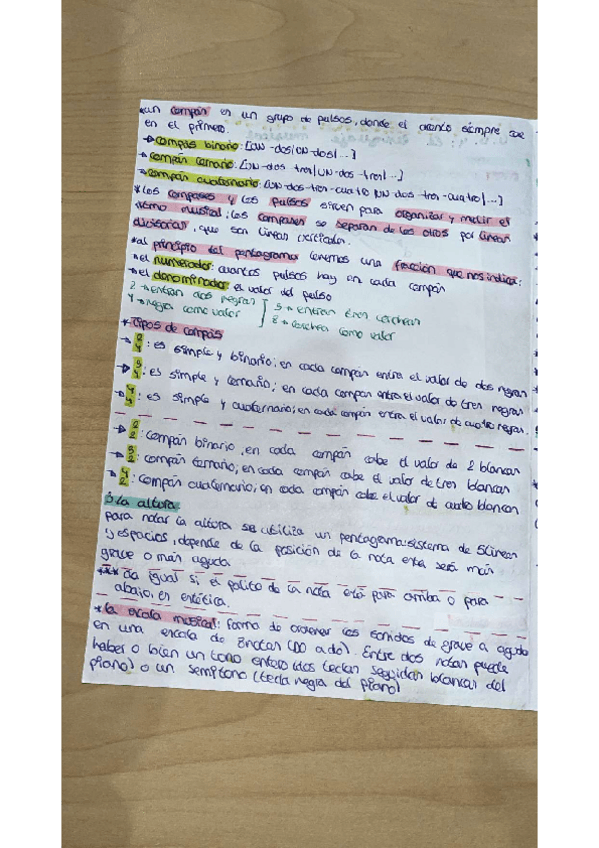 *un compás es un grupo de pulsos, donde el acento siempre cae
en el primero.
→ compás binario: [UN-dos|UN-dos|...]
→ compás ternario: [UN-dos tres|UN-dos-tres|...]
→ compás cuaternario: [UN-dos-tres-cuatro|UN dos-tres-cuatro|...]
*Los compases y los pulsos sirven para organizar y medir el
ritmo musical; los compases se separan de los otros por líneas
divisorias, que son líneas verticales.
*al principio del pentagrama tenemos una fracción que nos indica:
*el numerador: cuantos pulsos hay en cada compás
*el denominador: el valor del pulso
2 → entran dos negras 3 → entran tres corcheas
4 → negra como valor 8 → corchea como valor
*Tipos de compás
→ 2/4: es simple y binario; en cada compás entra el valor de dos negras
→ 3/4: es simple y ternario; en cada compás entra el valor de tres negras
→ 4/4: es simple y cuaternario; en cada compás entra el valor de cuatro negras.
→ 2/2: compás binario, en cada compás cabe el valor de 2 blancas
→ 3/2: compás ternario; en cada compás cabe el valor de tres blancas
→ 4/2: compás cuaternario; en cada compás cabe el valor de cuatro blancas
3 La altura:
para notar la altura se utiliza un pentagrama: sistema de 5 líneas
y espacios, depende de la posición de la nota esta será más
grave o más aguda.
*** da igual si el palito de la nota está para arriba o para
abajo, es estética.
*la escala musical: forma de ordenar los sonidos de grave a agudo
en una escala de 8 notas (DO a do). Entre dos notas puede
haber o bien un tono entero (dos teclas seguidas blancas del
piano) o un semitono (tecla negra del piano)